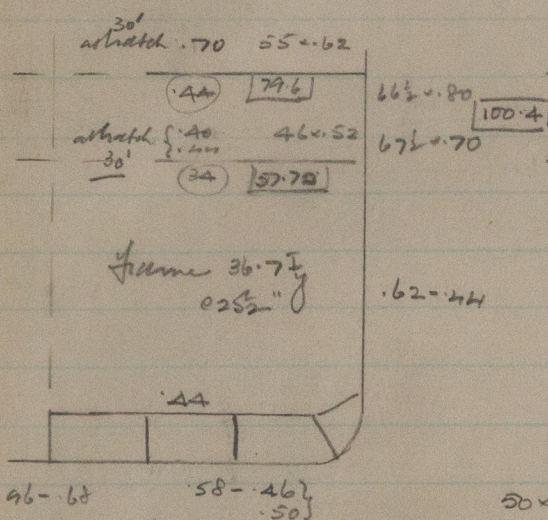 30'
at hatch .70 55 x .62
.44 79.6
66½ x .80
100.4
at hatch { .40 46 x .52
67½ x .70
30'
34 57.78
frame 36.7 I/y
.62 - .44
.44
96 - .68 .58 - .46}
.50}
50 x